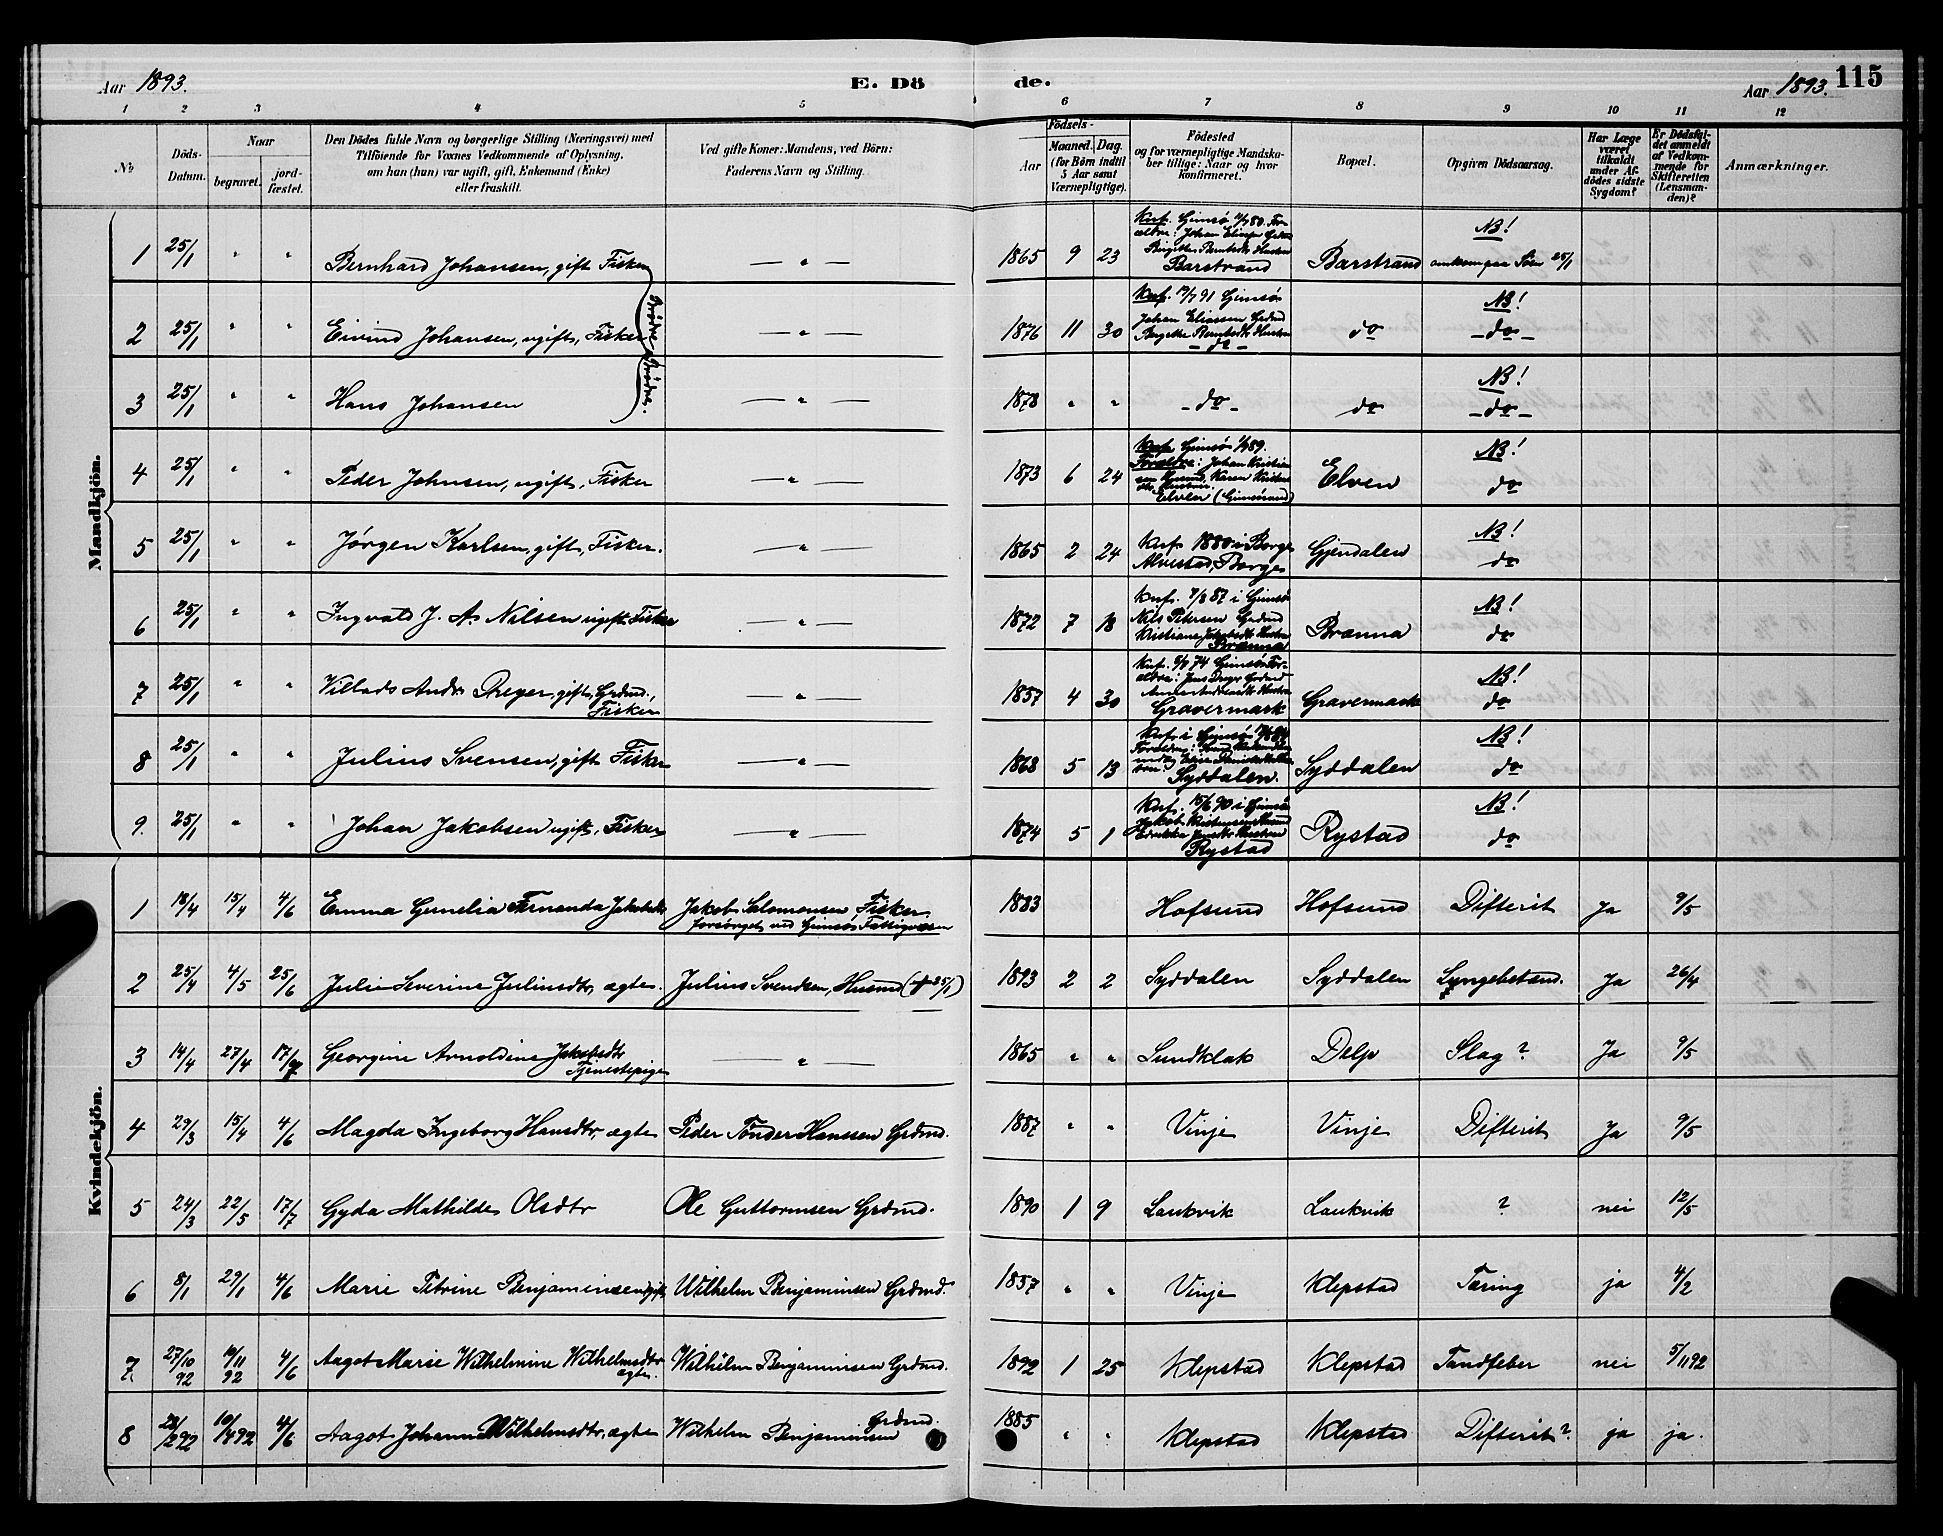 Aar 1893. E. Dö de. Aar 1893. 115
1 2 3 4 5 6 7 8 9 10 11 12
№ Döds-Datum. Naar begravet. jord-fæstet. Den Dödes fulde Navn og borgerlige Stilling (Næringsvei) med Tilföiende for Voxnes Vedkommende af Oplysning, om han (hun) var ugift, gift, Enkemand (Enke) eller fraskilt. Ved gifte Koner: Mandens, ved Börn: Faderens Navn og Stilling. Födsels- Aar Maaned. Dag. (for Börn indtil 5 Aar samt Værnepligtige). Födested og for værnepligtige Mandska-ber tillige: Naar og hvor konfirmeret. Bopæl. Opgiven Dödsaarsag. Har Læge været tilkaldt under Af-dödes sidste Sygdom? Er Dödsfal-det anmeldt af Vedkom-mende for Skifteretten (Lensman-den)? Anmærkninger.
Mandkjön.
1 25/1 " " Bernhard Johansen, gift Fisker — " — 1865 9 23 Barstrand Barstrand NB! omkom paa Söen 25/1
Brødre
2 25/1 " " Eivind Johansen, ugift, Fisker — " — 1876 11 30 Konf. 19/7 91 Gimsø Johan Eliassen Grdmd — do — do NB! — do —
Brødre.
3 25/1 " " Hans Johansen — " — 1878 " " — do — do NB! — do —
4 25/1 " " Peder Johnsen, ugift, Fisker — " — 1873 6 24 Forældre: Johan Kristian Elven (Gimsøsand) Elven NB! do
5 25/1 " " Jørgen Karlsen, gift, Fisker. — " — 1865 2 24 Konf. 1880 i Borge Alvestad, Borge Gjendalen NB! do
6 25/1 " " Ingvald J. A. Nilsen ugift Fisker — " — 1872 7 18 Konf. 7/8 87 i Gimsø Nils Petersen Grdmd Brænna Brænna NB! do
7 25/1 " " Villads Andr. Dreyer, gift, Grdmd., Fisker — " — 1857 4 30 Gravermark Gravermark NB! do
8 25/1 " " Julius Svensen, gift Fisker — " — 1868 5 13 Syddalen. Syddalen NB! do
9. 25/1 " " Johan Jakobsen ugift, Fisker — " — 1874 5 1 Konf. 15/6 90 i Gimsø Rystad Rystad NB! do
Kvindekjön.
1 18/4 15/4 4/6 Emma Cornelia Fernanda Jakobsdtr Jakob Salomonsen, Fisker forsørget ved Gimsø Fattigvæsen 1883 Hofsund Hofsund Difterit Ja 9/5
2 25/4 4/5 25/6 Julie Severine Juliusdtr, ægte. Julius Svendsen, Husmd (+ 25/1) 1893 2 2 Syddalen Syddalen Lungebetænd. Ja 26/4
3 14/4 27/4 17/7 Georgine Arnoldine Jakobsdtr Tjenestepige — " — 1865 " " Sundklak Delp Slag? Ja 9/5
4 29/3 15/4 4/6 Magda Ingeborg Hansdtr, ægte Peder Tønder Hanssen Grdmd. 1887 " " Vinje Vinje Difterit Ja 9/5
5 24/3 22/5 17/7 Gyda Mathilde Olsdtr Ole Guttormsen Grdmd. 1890 1 9 Laukvik Laukvik ? nei 12/5
6 8/1 29/1 4/6 Marie Petrine Benjaminsen gift Wilhelm Benjaminsen Grdmd. 1857 " " Vinje Klepstad Tæring ja 4/2
7. 27/10 92 10/11 92 4/6 Aagot Marie Wilhelmine Wilhelmsdtr ægte. Wilhelm Benjaminsen Grdmd. 1892 1 25 Klepstad Klepstad Tandfeber nei 5/11 92
8 4/6 Aagot Johanna Wilhelmsdtr, ægte Wilhelm Benjaminsen Grdmd. 1885 " " Klepstad Klepstad Difterit? ja ja.